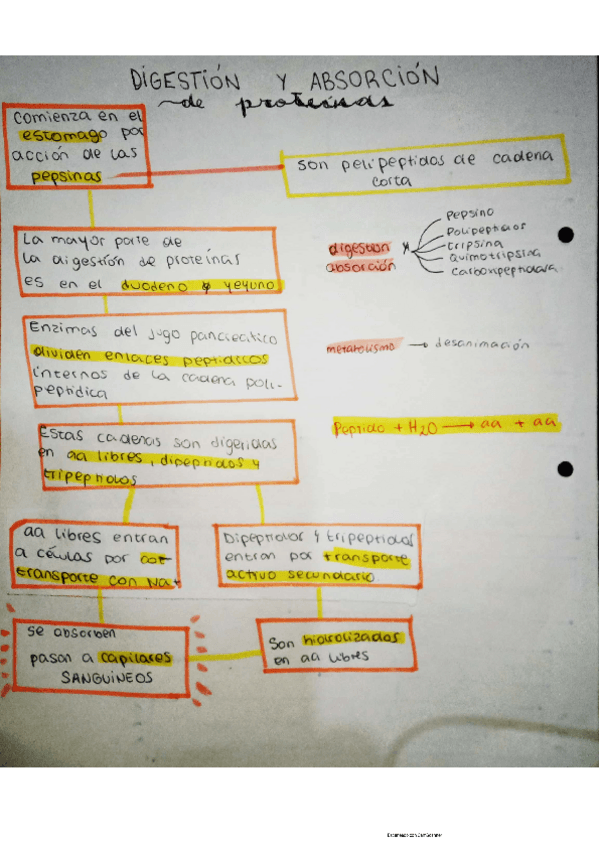 DIGESTIÓN Y ABSORCIÓN
de proteínas
Comienza en el
estomago por
acción de las
pepsinas
son pelipeptidos de cadena
corta
La mayor parte de
la digestión de proteínas
es en el duodeno y yeyuno
digestion
absorción
pepsino
polipeptidos
tripsina
Quimotripsing
carboxpeptidasa
Enzimas del jugo pancreático
dividen enlaces peptidicos
internos de la cadena poli-
peptidica
metabolismo → desaminación
Peptido + H2O → aa + aa
Estas cadenas son digeridas
en aa libres, dipeptidos y
tripeptidos
aa libres entran
a células por cot
transporte con Na+
Dipeptidos y tripeptidos
entran por transporte
activo secundario
se absorben
pasan a capilares
SANGUINEOS
Son hidrolizados
en aa libres
Escaneado con CamScanner